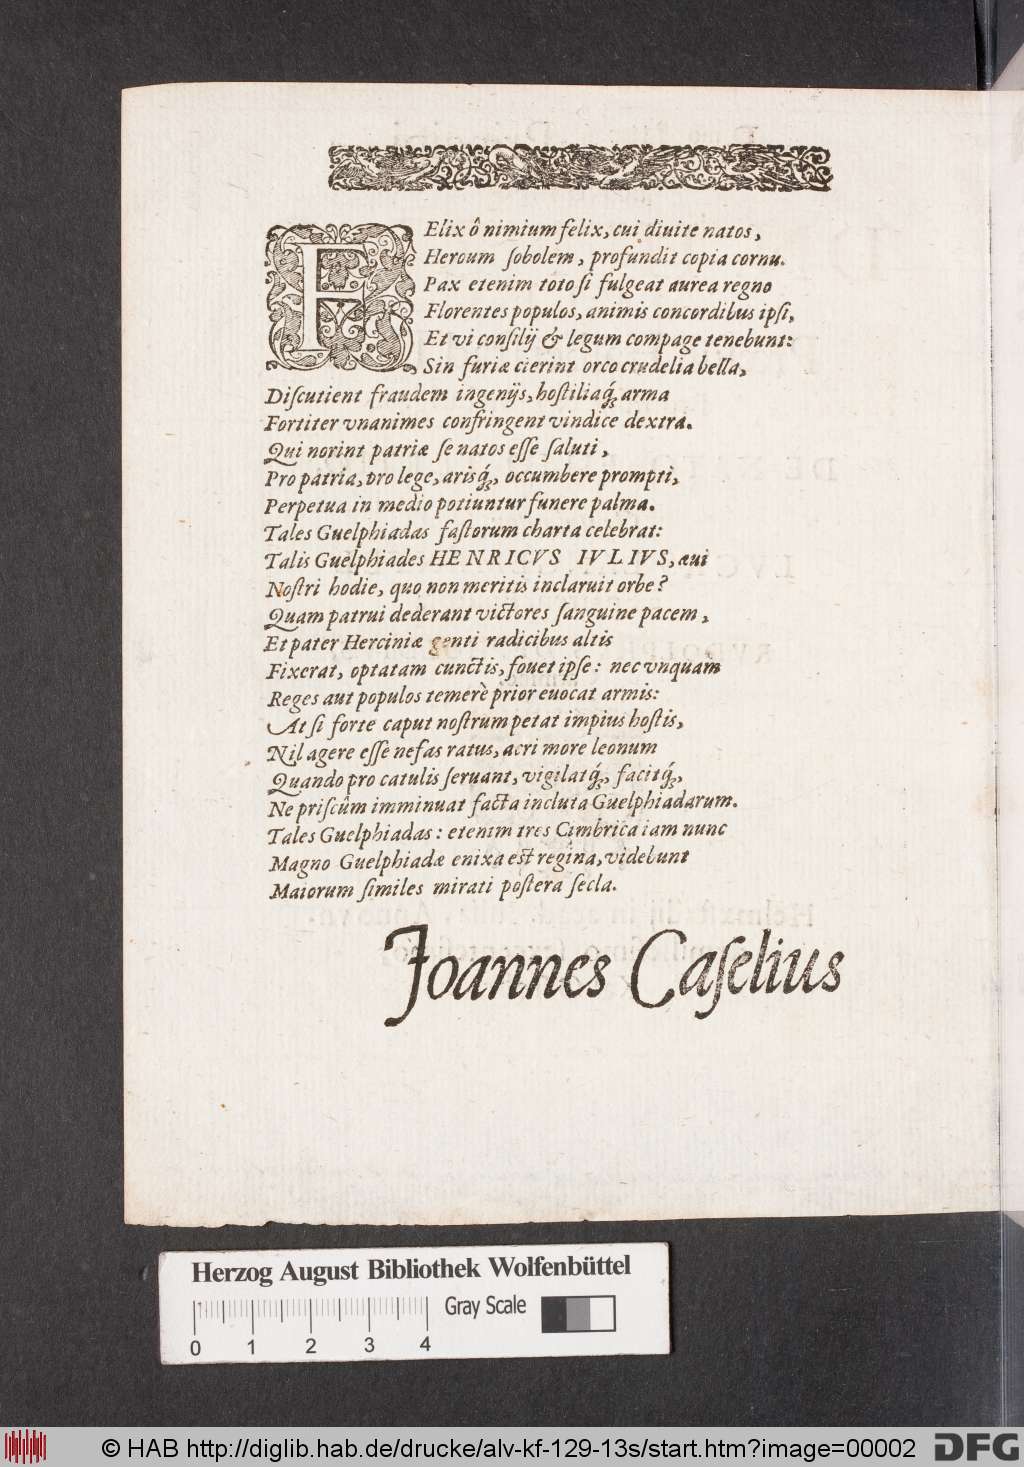 FElix ô nimium felix, cui diuite natos,
Heroum ſobolem, profundit copia cornu.
Pax etenim toto ſi fulgeat aurea regno
Florentes populos, animis concordibus ipſi,
Et vi conſilij & legum compage tenebunt:
Sin furiæ cierint orco crudelia bella,
Diſcutient fraudem ingenijs, hoſtiliaq́ꝫ arma
Fortiter vnanimes confringent vindice dextra.
Qui norint patriæ ſe natos eſſe ſaluti,
Pro patria, pro lege, arisq́ꝫ, occumbere prompti,
Perpetua in medio potiuntur funere palma.
Tales Guelphiadas faſtorum charta celebrat:
Talis Guelphiades HENRICVS IVLIVS, æui
Noſtri hodie, quo non meritis inclaruit orbe?
Quam patrui dederant victores ſanguine pacem,
Et pater Herciniæ genti radicibus altis
Fixerat, optatam cunctis, fouet ipſe: nec vnquam
Reges aut populos temerè prior euocat armis:
At ſi forte caput noſtrum petat impius hoſtis,
Nil agere eſſe nefas ratus, acri more leonum
Quando pro catulis ſeruant, vigilatq́ꝫ, facitq́ꝫ,
Ne priſcûm imminuat facta incluta Guelphiadarum.
Tales Guelphiadas: etenim tres Cimbrica iam nunc
Magno Guelphiadæ enixa est regina, videbunt
Maiorum ſimiles mirati poſtera ſecla.
Joannes Caſelius
Herzog August Bibliothek Wolfenbüttel
Gray Scale
0 1 2 3 4
© HAB http://diglib.hab.de/drucke/alv-kf-129-13s/start.htm?image=00002
DFG